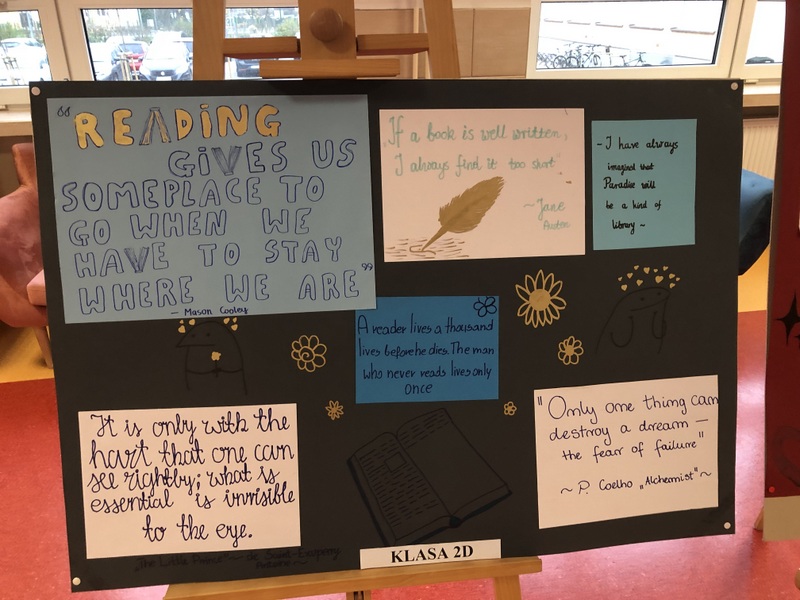 "READING
GIVES US
SOMEPLACE TO
GO WHEN WE
HAVE TO STAY
WHERE WE ARE"
- Mason Cooley
„If a book is well written,
I always find it too short"
~ Jane
Austen
- I have always
imagined that
Paradise will
be a kind of
library ~
A reader lives a thousand
lives before he dies. The man
who never reads lives only
once
It is only with the
hart that one can
see rightly; what is
essential is invisible
to the eye.
"The Little Prince" ~ de Saint-Exupery
Antoine ~
"Only one thing can
destroy a dream —
the fear of failure"
~ P. Coelho „Alchemist" ~
KLASA 2D